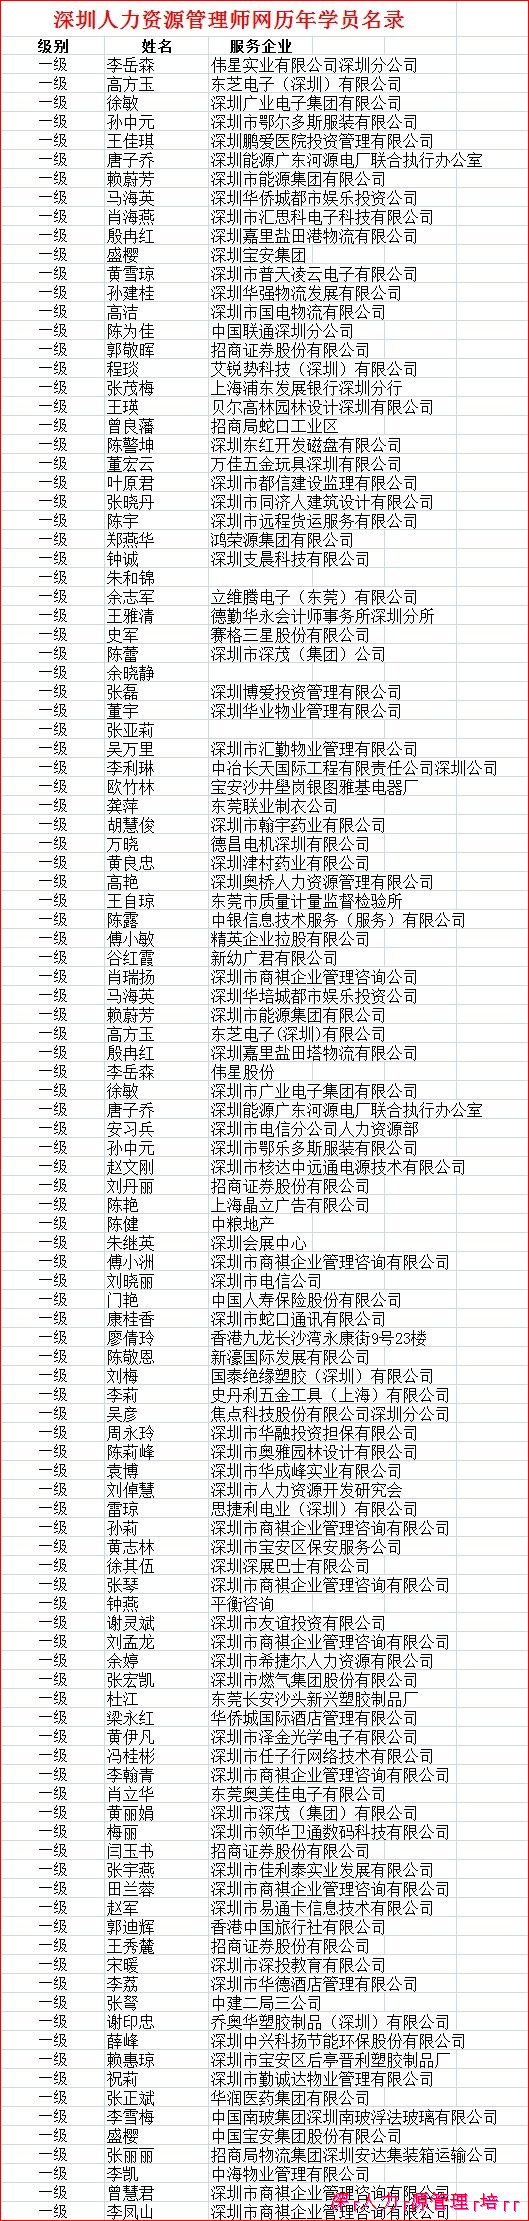 深圳人力资源管理师网历年学员名录
级别 姓名 服务企业
一级 李岳森 伟星实业有限公司深圳分公司
一级 高方玉 东芝电子（深圳）有限公司
一级 徐敏 深圳广业电子集团有限公司
一级 孙中元 深圳市鄂尔多斯服装有限公司
一级 王佳琪 深圳鹏爱医院投资管理有限公司
一级 唐子乔 深圳能源广东河源电厂联合执行办公室
一级 赖蔚芳 深圳市能源集团有限公司
一级 马海英 深圳华侨城都市娱乐投资公司
一级 肖海燕 深圳市汇思科电子科技有限公司
一级 殷冉红 深圳嘉里盐田港物流有限公司
一级 盛樱 深圳宝安集团
一级 黄雪琼 深圳市普天凌云电子有限公司
一级 孙建桂 深圳华强物流发展有限公司
一级 高洁 深圳市国电物流有限公司
一级 陈为佳 中国联通深圳分公司
一级 郭敬晖 招商证券股份有限公司
一级 程琰 艾锐势科技（深圳）有限公司
一级 张茂梅 上海浦东发展银行深圳分行
一级 王瑛 贝尔高林园林设计深圳有限公司
一级 曾良藩 招商局蛇口工业区
一级 陈警坤 深圳东红开发磁盘有限公司
一级 董宏云 万佳五金玩具深圳有限公司
一级 叶原君 深圳市都信建设监理有限公司
一级 张晓丹 深圳市同济人建筑设计有限公司
一级 陈宇 深圳市远程货运服务有限公司
一级 郑燕华 鸿荣源集团有限公司
一级 钟诚 深圳支晨科技有限公司
一级 朱和锦
一级 余志军 立维腾电子（东莞）有限公司
一级 王雅清 德勤华永会计师事务所深圳分所
一级 史军 赛格三星股份有限公司
一级 陈蕾 深圳市深茂（集团）公司
一级 余晓静
一级 张磊 深圳博爱投资管理有限公司
一级 董宇 深圳华业物业管理有限公司
一级 张亚莉
一级 吴万里 深圳市汇勤物业管理有限公司
一级 李利琳 中冶长天国际工程有限责任公司深圳公司
一级 欧竹林 宝安沙井壆岗银图雅基电器厂
一级 龚萍 东莞联业制衣公司
一级 胡慧俊 深圳市翰宇药业有限公司
一级 万晓 德昌电机深圳有限公司
一级 黄良忠 深圳津村药业有限公司
一级 高艳 深圳奥桥人力资源管理有限公司
一级 王自琼 东莞市质量计量监督检验所
一级 陈露 中银信息技术服务（服务）有限公司
一级 傅小敏 精英企业拉股有限公司
一级 谷红霞 新幼广君有限公司
一级 肖瑞扬 深圳市商祺企业管理咨询公司
一级 马海英 深圳华培城都市娱乐投资公司
一级 赖蔚芳 深圳市能源集团有限公司
一级 高方玉 东芝电子(深圳)有限公司
一级 殷冉红 深圳嘉里盐田塔物流有限公司
一级 李岳森 伟星股份
一级 徐敏 深圳市广业电子集团有限公司
一级 唐子乔 深圳能源广东河源电厂联合执行办公室
一级 安习兵 深圳市电信分公司人力资源部
一级 孙中元 深圳市鄂乐多斯服装有限公司
一级 赵文刚 深圳市核达中远通电源技术有限公司
一级 刘丹丽 招商证券股份有限公司
一级 陈艳 上海晶立广告有限公司
一级 陈健 中粮地产
一级 朱继英 深圳会展中心
一级 傅小洲 深圳市商祺企业管理咨询有限公司
一级 刘晓丽 深圳市电信公司
一级 门艳 中国人寿保险股份有限公司
一级 康桂香 深圳市蛇口通讯有限公司
一级 廖倩玲 香港九龙长沙湾永康街9号23楼
一级 陈敬恩 新濠国际发展有限公司
一级 刘梅 国泰绝缘塑胶（深圳）有限公司
一级 李莉 史丹利五金工具（上海）有限公司
一级 吴彦 焦点科技股份有限公司深圳分公司
一级 周永玲 深圳市华融投资担保有限公司
一级 陈莉峰 深圳市奥雅园林设计有限公司
一级 袁博 深圳市华成峰实业有限公司
一级 刘倬慧 深圳市人力资源开发研究会
一级 雷琼 思捷利电业（深圳）有限公司
一级 孙莉 深圳市商祺企业管理咨询有限公司
一级 黄志林 深圳市宝安区保安服务公司
一级 徐其伍 深圳深展巴士有限公司
一级 张琴 深圳市商祺企业管理咨询有限公司
一级 钟燕 平衡咨询
一级 谢灵斌 深圳市友谊投资有限公司
一级 刘孟龙 深圳市商祺企业管理咨询有限公司
一级 余婷 深圳市希捷尔人力资源有限公司
一级 张宏凯 深圳市燃气集团股份有限公司
一级 杜江 东莞长安沙头新兴塑胶制品厂
一级 梁永红 华侨城国际酒店管理有限公司
一级 黄伊凡 深圳市泽金光学电子有限公司
一级 冯桂彬 深圳市任子行网络技术有限公司
一级 李翰青 深圳市商祺企业管理咨询有限公司
一级 肖立华 东莞奥美佳电子有限公司
一级 黄丽娟 深圳市深茂（集团）有限公司
一级 梅丽 深圳市领华卫通数码科技有限公司
一级 闫玉书 招商证券股份有限公司
一级 张宇燕 深圳市佳利泰实业发展有限公司
一级 田兰蓉 深圳市商祺企业管理咨询有限公司
一级 赵军 深圳市易通卡信息技术有限公司
一级 郭迪辉 香港中国旅行社有限公司
一级 王秀麓 招商证券股份有限公司
一级 宋暖 深圳市深投教育有限公司
一级 李荔 深圳市华德酒店管理有限公司
一级 张弩 中建二局三公司
一级 谢印忠 乔奥华塑胶制品（深圳）有限公司
一级 薛峰 深圳中兴科扬节能环保股份有限公司
一级 赖惠琼 深圳市宝安区后亭晋利塑胶制品厂
一级 祝莉 深圳市勤诚达物业管理有限公司
一级 张正斌 华润医药集团有限公司
一级 李雪梅 中国南玻集团深圳南玻浮法玻璃有限公司
一级 盛樱 中国宝安集团股份有限公司
一级 张丽丽 招商局物流集团深圳安达集装箱运输公司
一级 李凯 中海物业管理有限公司
一级 曾慧君 深圳市商祺企业管理有限公司
一级 李凤山 深圳市商祺企业管理咨询有限公司